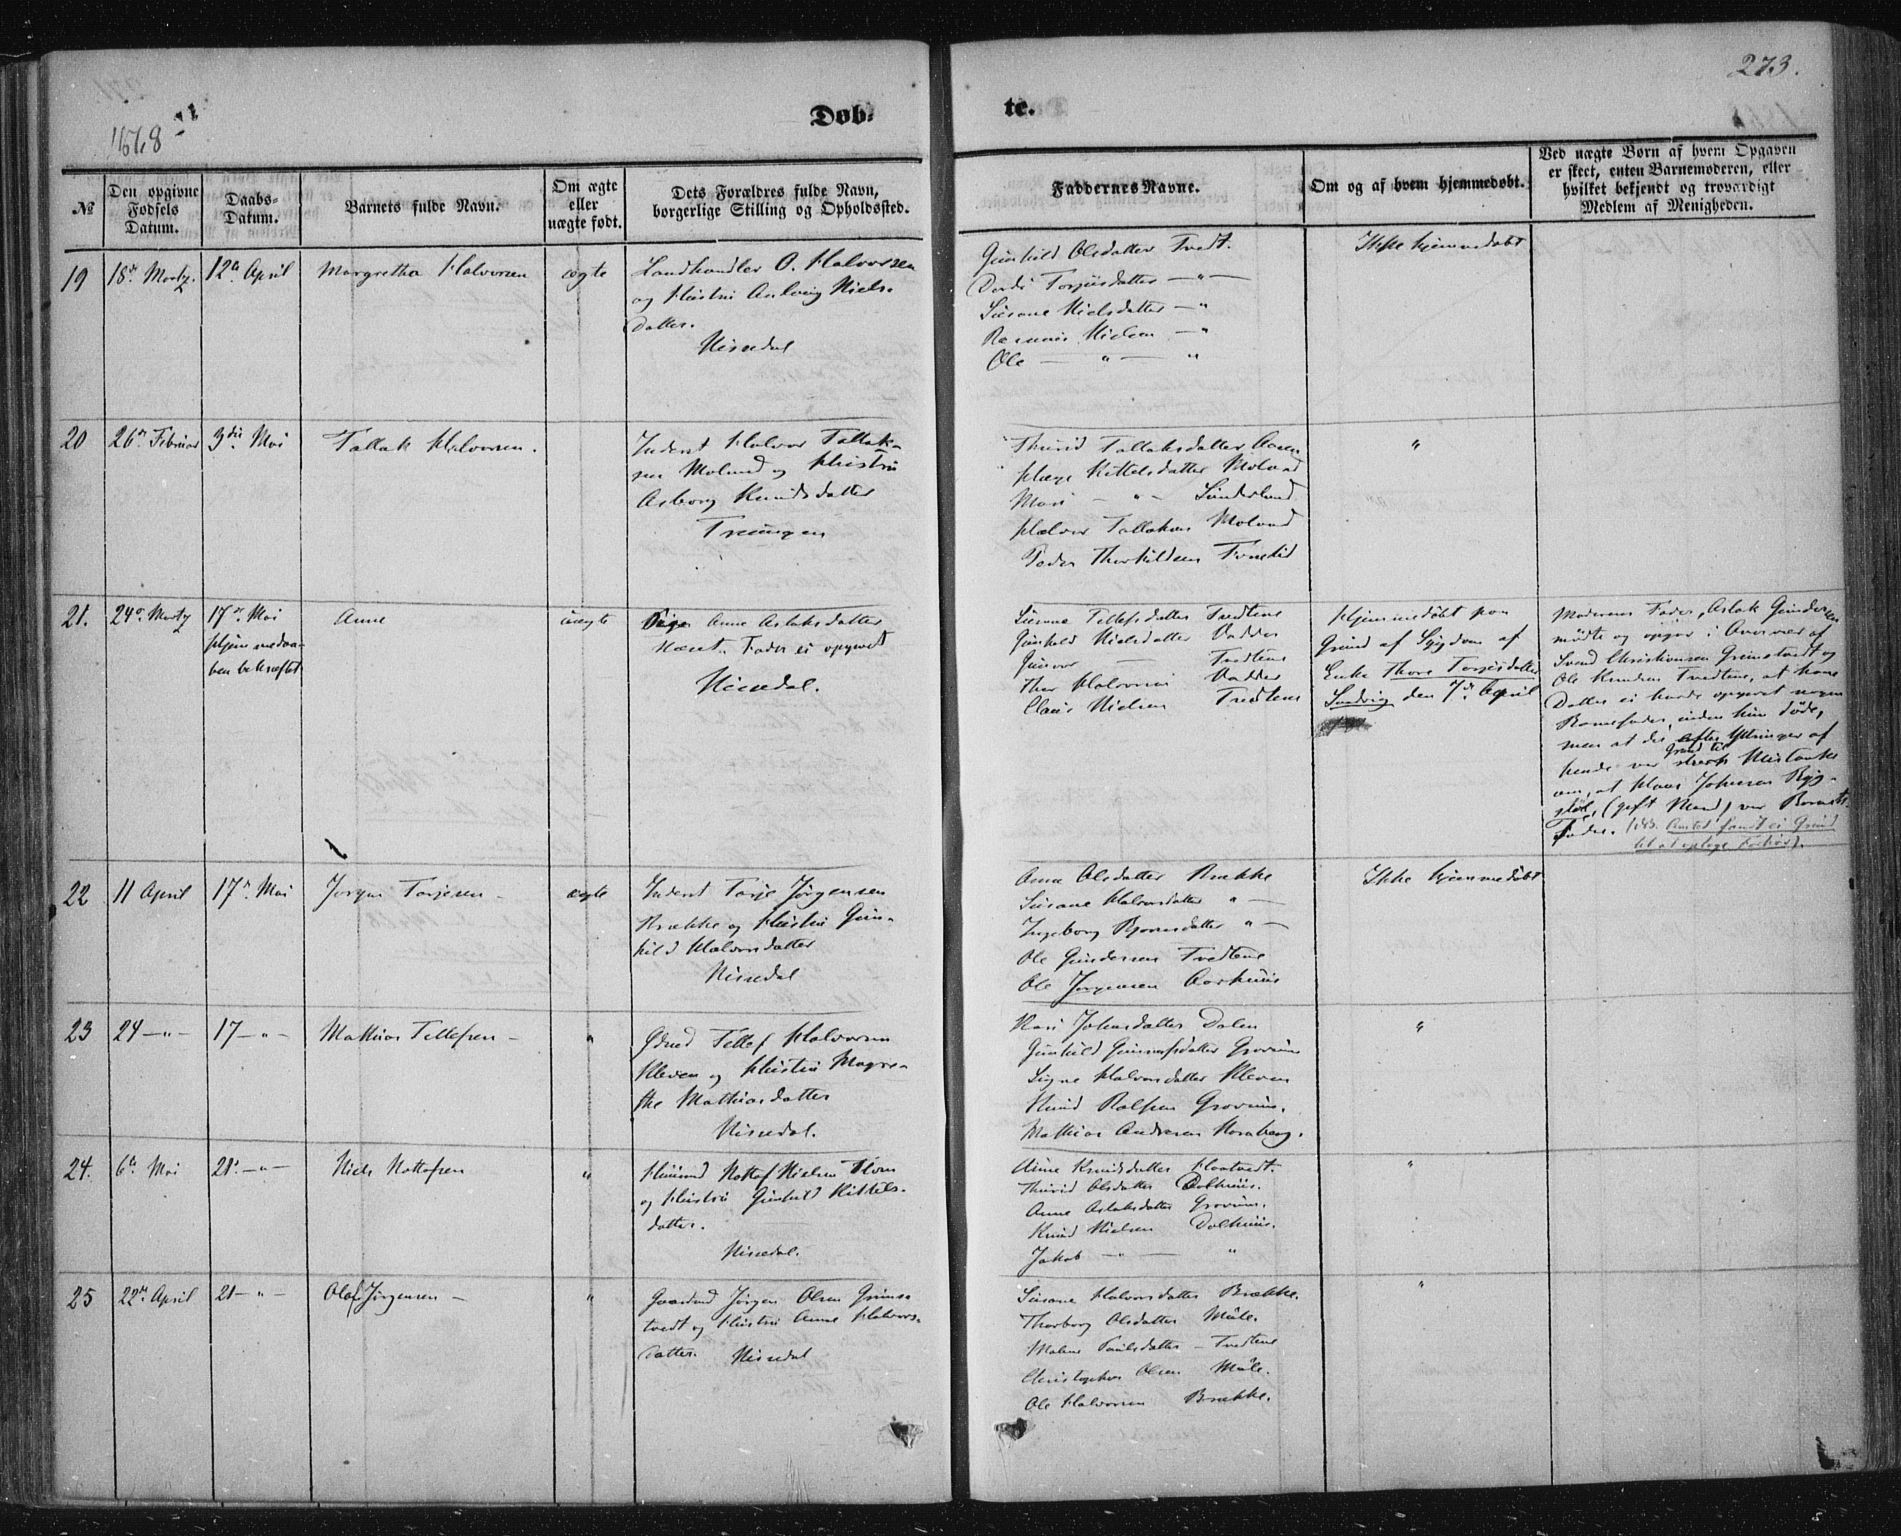 273.
Døb-
te.
1868
№
Den opgivne
Fødsels
Datum.
Daabs-
Datum.
Barnets fulde Navn.
Om ægte
eller
uægte født.
Dets Forældres fulde Navn,
borgerlige Stilling og Opholdssted.
Faddernes Navne.
Om og af hvem hjemmedøbt.
Ved uægte Børn af hvem Opgaven
er skeet, enten Barnemoderen, eller
hvilket bekjendt og troværdigt
Medlem af Menigheden.
19
18de Martz.
12te April
Margrethe Halvorsen
ægte
Landhandler O. Halvorsen
og Hustru Aslaug Niels-
datter.
Nissedal
Gunhild Olsdatter Tvedt.
Dordi Torjusdatter — " —
Susane Nielsdatter — "
Rasmus Nielsen — "
Ole — " — "
Ikke hjemmedøbt
20
26de Februar
3die Mai
Tallak Halvorsen.
Inderst Halvor Tallak-
sen Moland og Hustru
Asborg Knudsdatter
Treungen
Thurid Tallaksdatter
Hæge Kittelsdatter Moland
Mari — " — Sunderland
Halvor Tallaksen Moland
Peder Thorkildsen
"
21.
24de Martz
17de Mai
Hjemmedaa-
ben bekræftet
Anne
uægte
Pige Anne Aslaksdatter
Fader ei opgivet
Nissedal.
Susane Tellefsdatter Tvedtene
Gunhild Nielsdatter Vadder
Gunvor — Tvedtene
Thor Halvorsen Vadder
Claus Nielsen Tvedtene
Hjemmedøbt paa
Grund af Sygdom af
Enke Thore Torjusdatter
Sandvig den 7de April
Moderens Fader, Aslak Gundersen
mødte og opgav i Overvær af
Svend Christiansen Grimstvedt og
Ole Knudsen Tvedtene, at hans
Datter ei havde opgivet nogen
Barnefader, inden hun døde,
men at der efter Yttringer af
hende var Grund til stærk Mistanke
om, at Hans Johnsen Ryg-
(gift Mand) var Barnets
Fader. (NB. Amtet fandt ei Grund
til at optage Forhør).
22
11 April
17de Mai
Jørgen Torjesen —
ægte
Inderst Torje Jørgensen
Brække og Hustru Gun-
hild Halvorsdatter
Nissedal
Anne Olsdatter Brække
Susane Halvorsdatter " —
Ingeborg Bjørnsdatter " —
Ole Gundersen Tvedtene
Ole Jørgensen Aarhuus
Ikke hjemmedøbt
23
24 — " —
17 — " —
Mathias Tellefsen —
"
Gdmd Tellef Halvorsen
Kleven og Hustru Magre-
the Mathiasdatter
Nissedal.
Kari Johnsdatter Dalen
Gunhild Gunnufsdatter Grovum
Signe Halvorsdatter Kleven
Knud Rolfsen Grovum.
Mathias Andersen Haraberg.
"
24.
6te Mai
21de — " —
Niels Nottofsen
"
Huusmd Nottof Nielsen
og Hustru Gunhild Kittels-
datter.
Nissedal.
Anne Knudsdatter
Thurid Olsdatter Dalhuus.
Anne Aslaksdatter Grovum.
Knud Nielsen Dalhuus.
Jakob — " — "
"
25
22de April
21 — " —
Olaf Jørgensen —
"
Gaardmd Jørgen Olsen Grims-
tvedt og Hustru Anne Halvors-
datter. Nissedal
Susane Halvorsdatter Brække.
Thorborg Olsdatter Midle.
Malene Poulsdatter — Tvedtene
Christopher Olsen Midle.
Ole Halvorsen Brække.
"